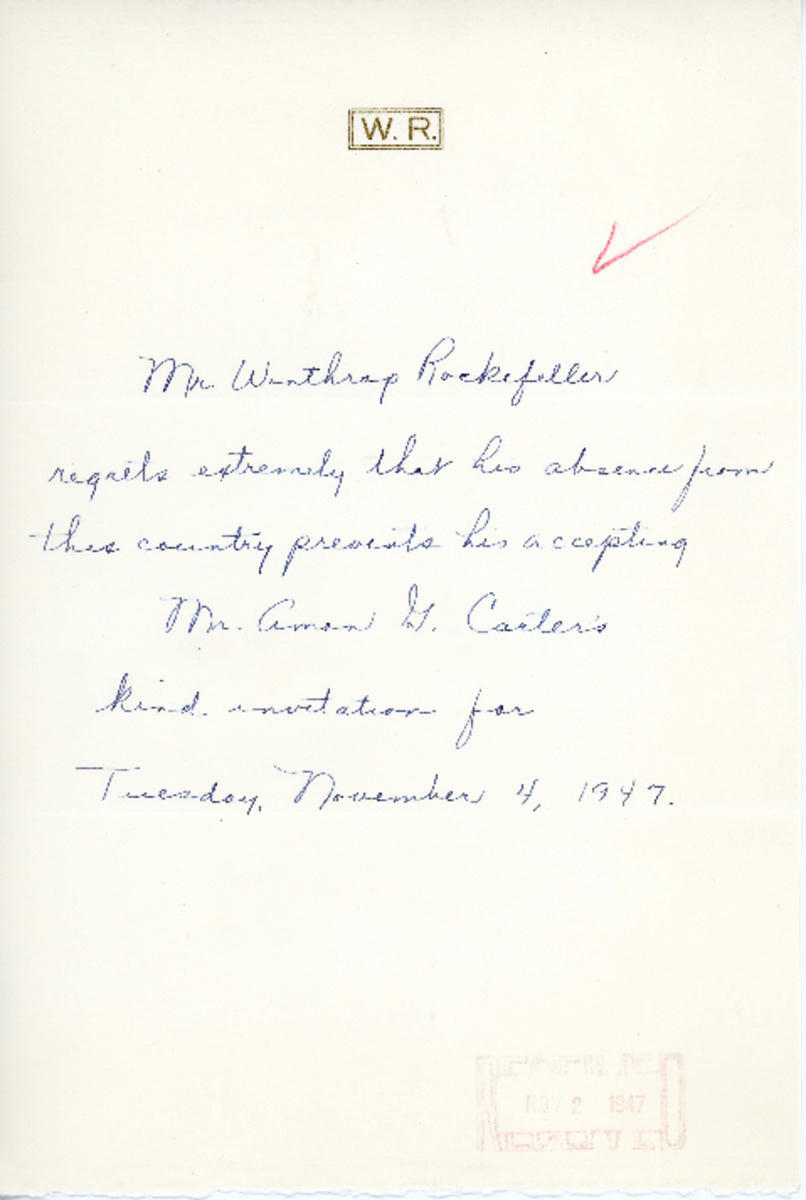 W. R.
Mr Winthrop Rockefeller
regrets extremely that his absence from
this country prevents his accepting
Mr. Amon G. Carter's
kind invitation for
Tuesday, November 4, 1947.
NOV 2 1947